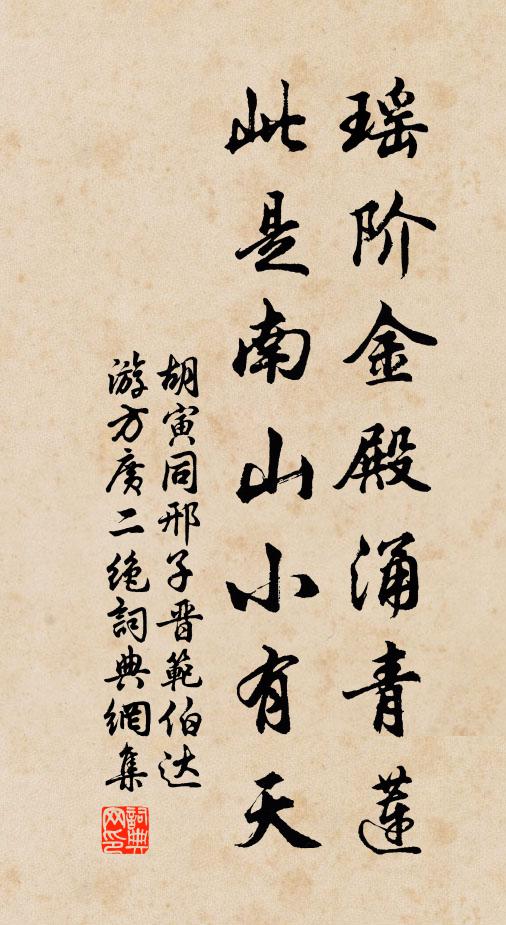 瑶阶金殿涌青莲
此是南山小有天
胡寅同邢子晋範伯达
游方廣二绝詞典網集
詞典网印